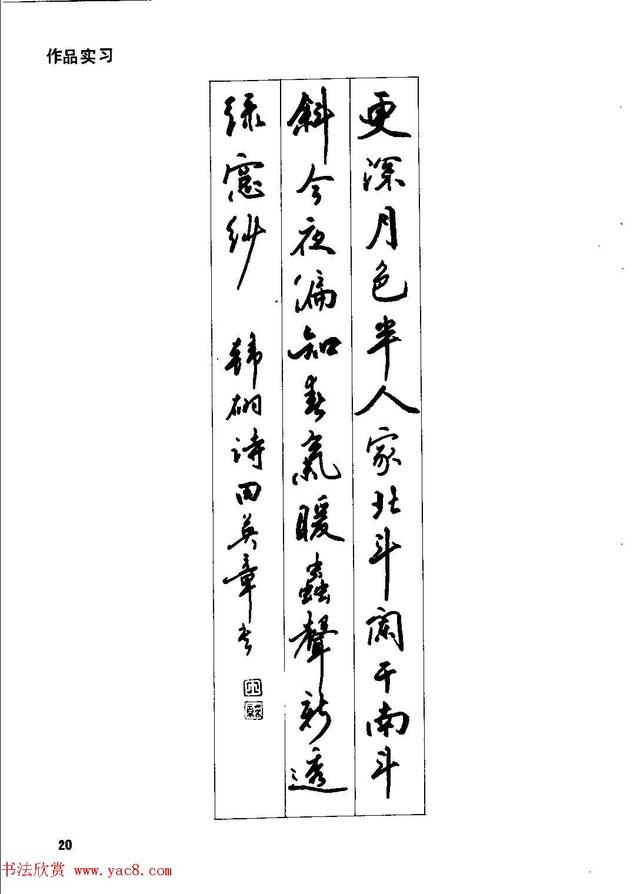 作品实习
更深月色半人家北斗阑干南斗
斜今夜偏知春气暖蟲聲新透
绿窓纱 韩翃诗田英章书
20
书法欣赏 www.yac8.com